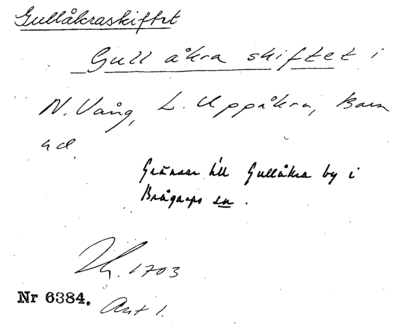 Gullåkraskiftet
Gullåkra skiftet i
N. Vång, L. Uppåkra, Bara
hd
Gränsar till Gullåkra by i
Brågarps sn.
1703
Nr 6384. Akt 1.